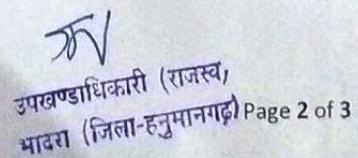 उपखण्डाधिकारी (राजस्व,
भादरा (जिला-हनुमानगढ़) Page 2 of 3